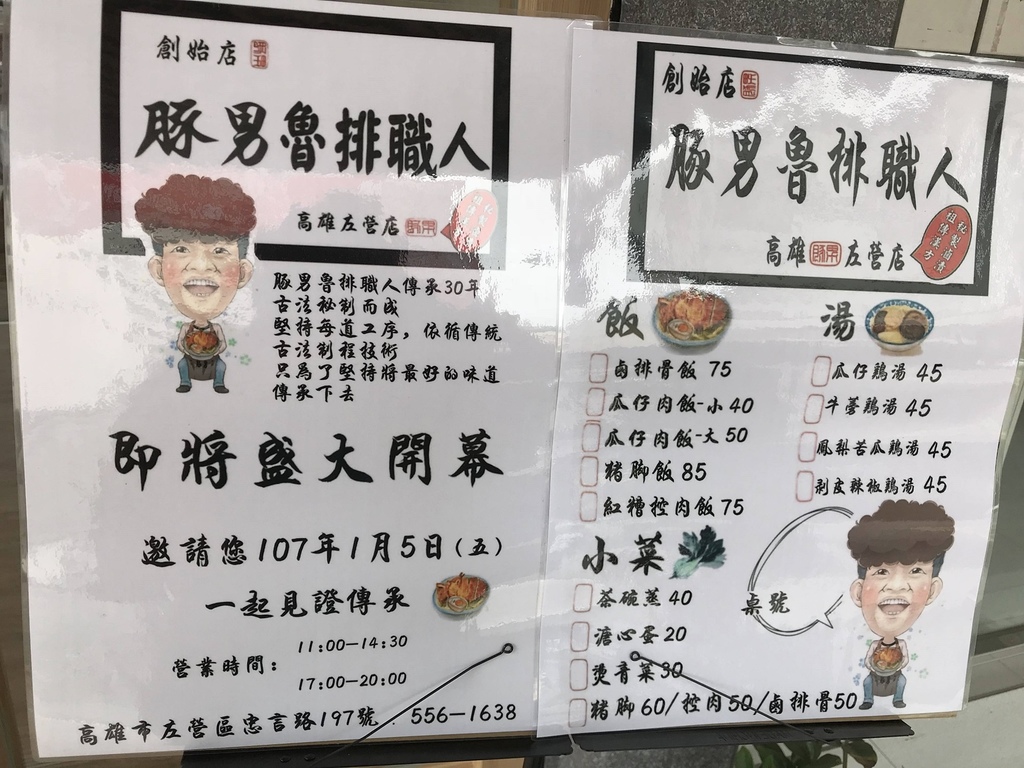 創始店
豚男魯排職人
高雄左營店
豚男魯排職人傳承30年
古法秘制而成
堅持每道工序,依循傳統
古法制程技術
只為了堅持將最好的味道
傳承下去
即將盛大開幕
邀請您107年1月5日(五)
一起見證傳承
營業時間:
11:00-14:30
17:00-20:00
高雄市左營區忠言路197號 : 556-1638
創始店
豚男魯排職人
高雄 左營店
祖傳漢方
飯
鹵排骨飯 75
瓜仔肉飯-小 40
瓜仔肉飯-大 50
豬腳飯 85
紅糟控肉飯 75
湯
瓜仔鷄湯 45
牛蒡鷄湯 45
鳳梨苦瓜鷄湯 45
剥皮辣椒鷄湯 45
小菜
茶碗蒸 40
溏心蛋 20
燙青菜 30
豬腳 60/控肉 50/鹵排骨 50
桌號